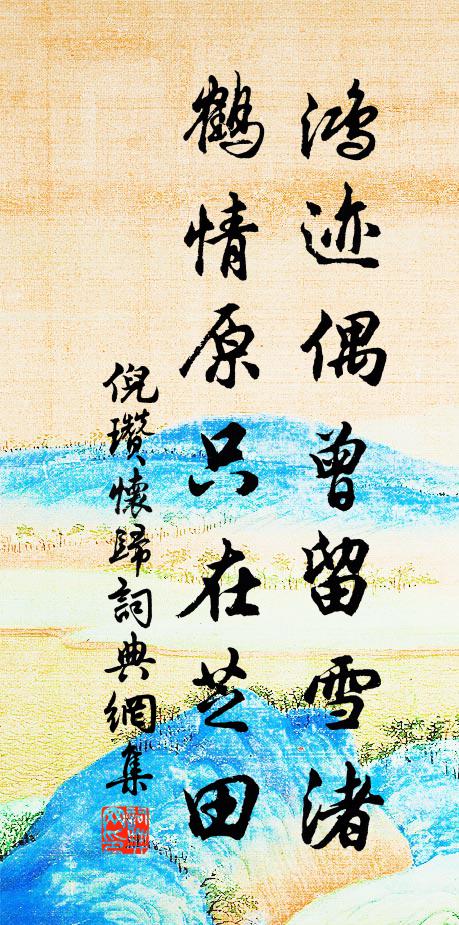 鸿迹偶曾留雪渚
鹤情原只在芝田
倪瓒懷歸詞典網集